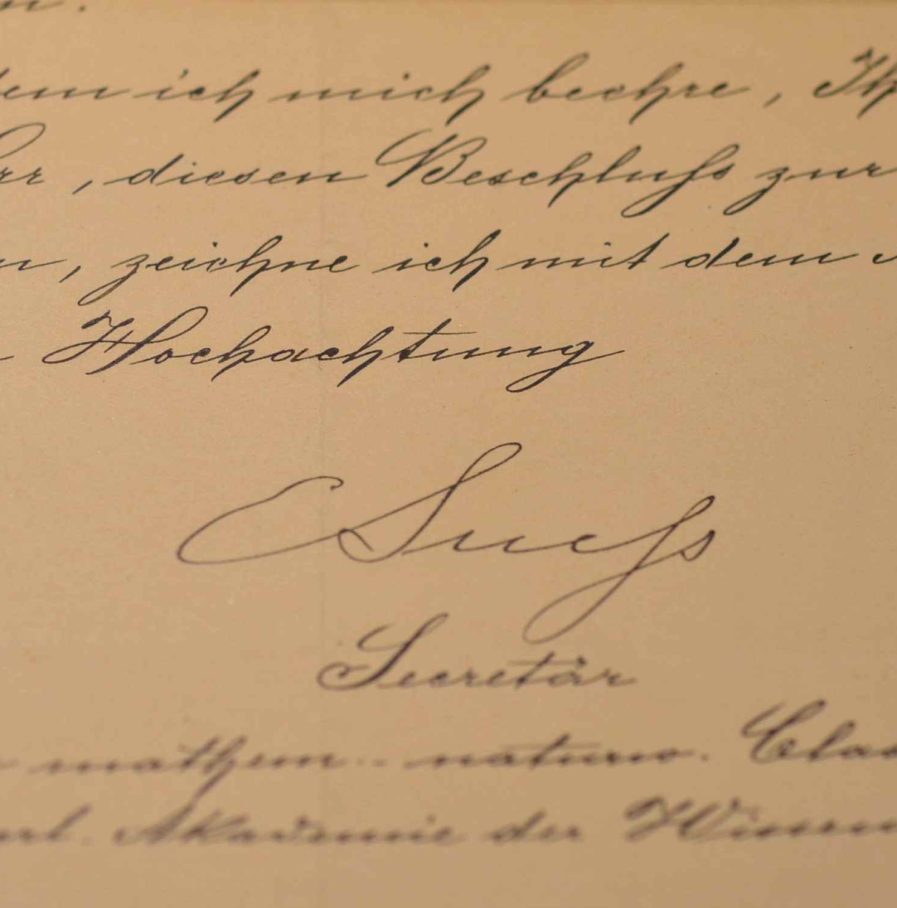 dem ich mich beehre, Ih
rr, diesen Beschluſs zur
n, zeichne ich mit dem
Hochachtung
E Sueſs
Secretär
mathem.. naturw. Clas
Akademie der Wissen